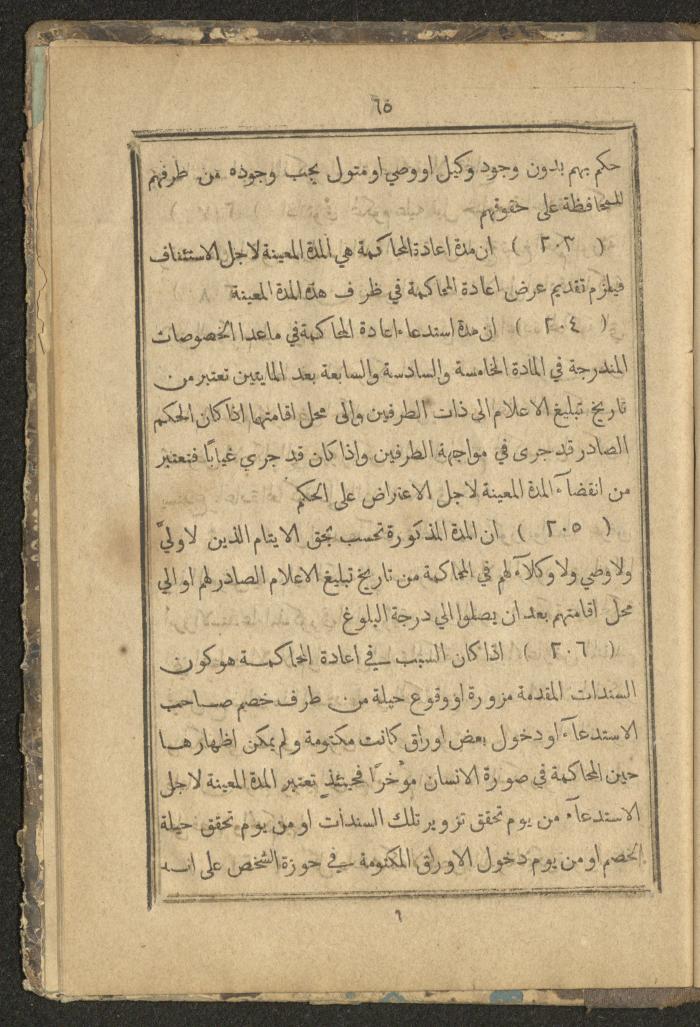 ٦٥
حكم بهم بدون وجود وكيل او وصي او متول يجب وجوده من طرفهم
للمحافظة على حقوقهم
( ٢٠٣ ) ان مدة اعادة المحاكمة هي المدة المعينة لاجل الاستئناف
فيلزم تقديم عرض اعادة المحاكمة في ظرف هذه المدة المعينة
( ٢٠٤ ) ان مدة استدعاء اعادة المحاكمة في ما عدا الخصوصات
المندرجة في المادة الخامسة والسادسة والسابعة بعد المايتين تعتبر من
تاريخ تبليغ الاعلام الى ذات الطرفين والى محل اقامتهما اذا كان الحكم
الصادر قد جرى في مواجهة الطرفين واذا كان قد جري غيابًا فتعتبر
من انقضآء المدة المعينة لاجل الاعتراض على الحكم
( ٢٠٥ ) ان المدة المذكورة تحسب بحق الايتام الذين لا وليّ
ولا وصي ولا وكلآء لهم في المحاكمة من تاريخ تبليغ الاعلام الصادر لهم او الي
محل اقامتهم بعد ان يصلوا الي درجة البلوغ
( ٢٠٦ ) اذا كان السبب في اعادة المحاكمة هو كون
السندات المقدمة مزورة او وقوع حيلة من طرف خصم صاحب
الاستدعآء او دخول بعض اوراق كانت مكتومة ولم يمكن اظهارها
حين المحاكمة في صورة الانسان مؤخرًا فحينئذٍ تعتبر المدة المعينة لاجل
الاستدعآء من يوم تحقق تزوير تلك السندات او من يوم تحقق حيلة
الخصم او من يوم دخول الاوراق المكتومة في حوزة الشخص على انه
٩